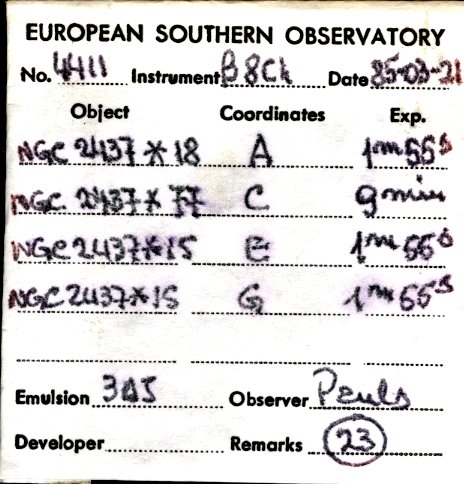 EUROPEAN SOUTHERN OBSERVATORY
No. 4411 Instrument β8Ch Date 85-03-21
Object Coordinates Exp.
NGC 2437*18 A 1m 55s
NGC 2437*77 C 9min
NGC 2437*15 E 1m 55s
NGC 2437*15 G 1m 55s
Emulsion Observer Pauls
Developer Remarks 23